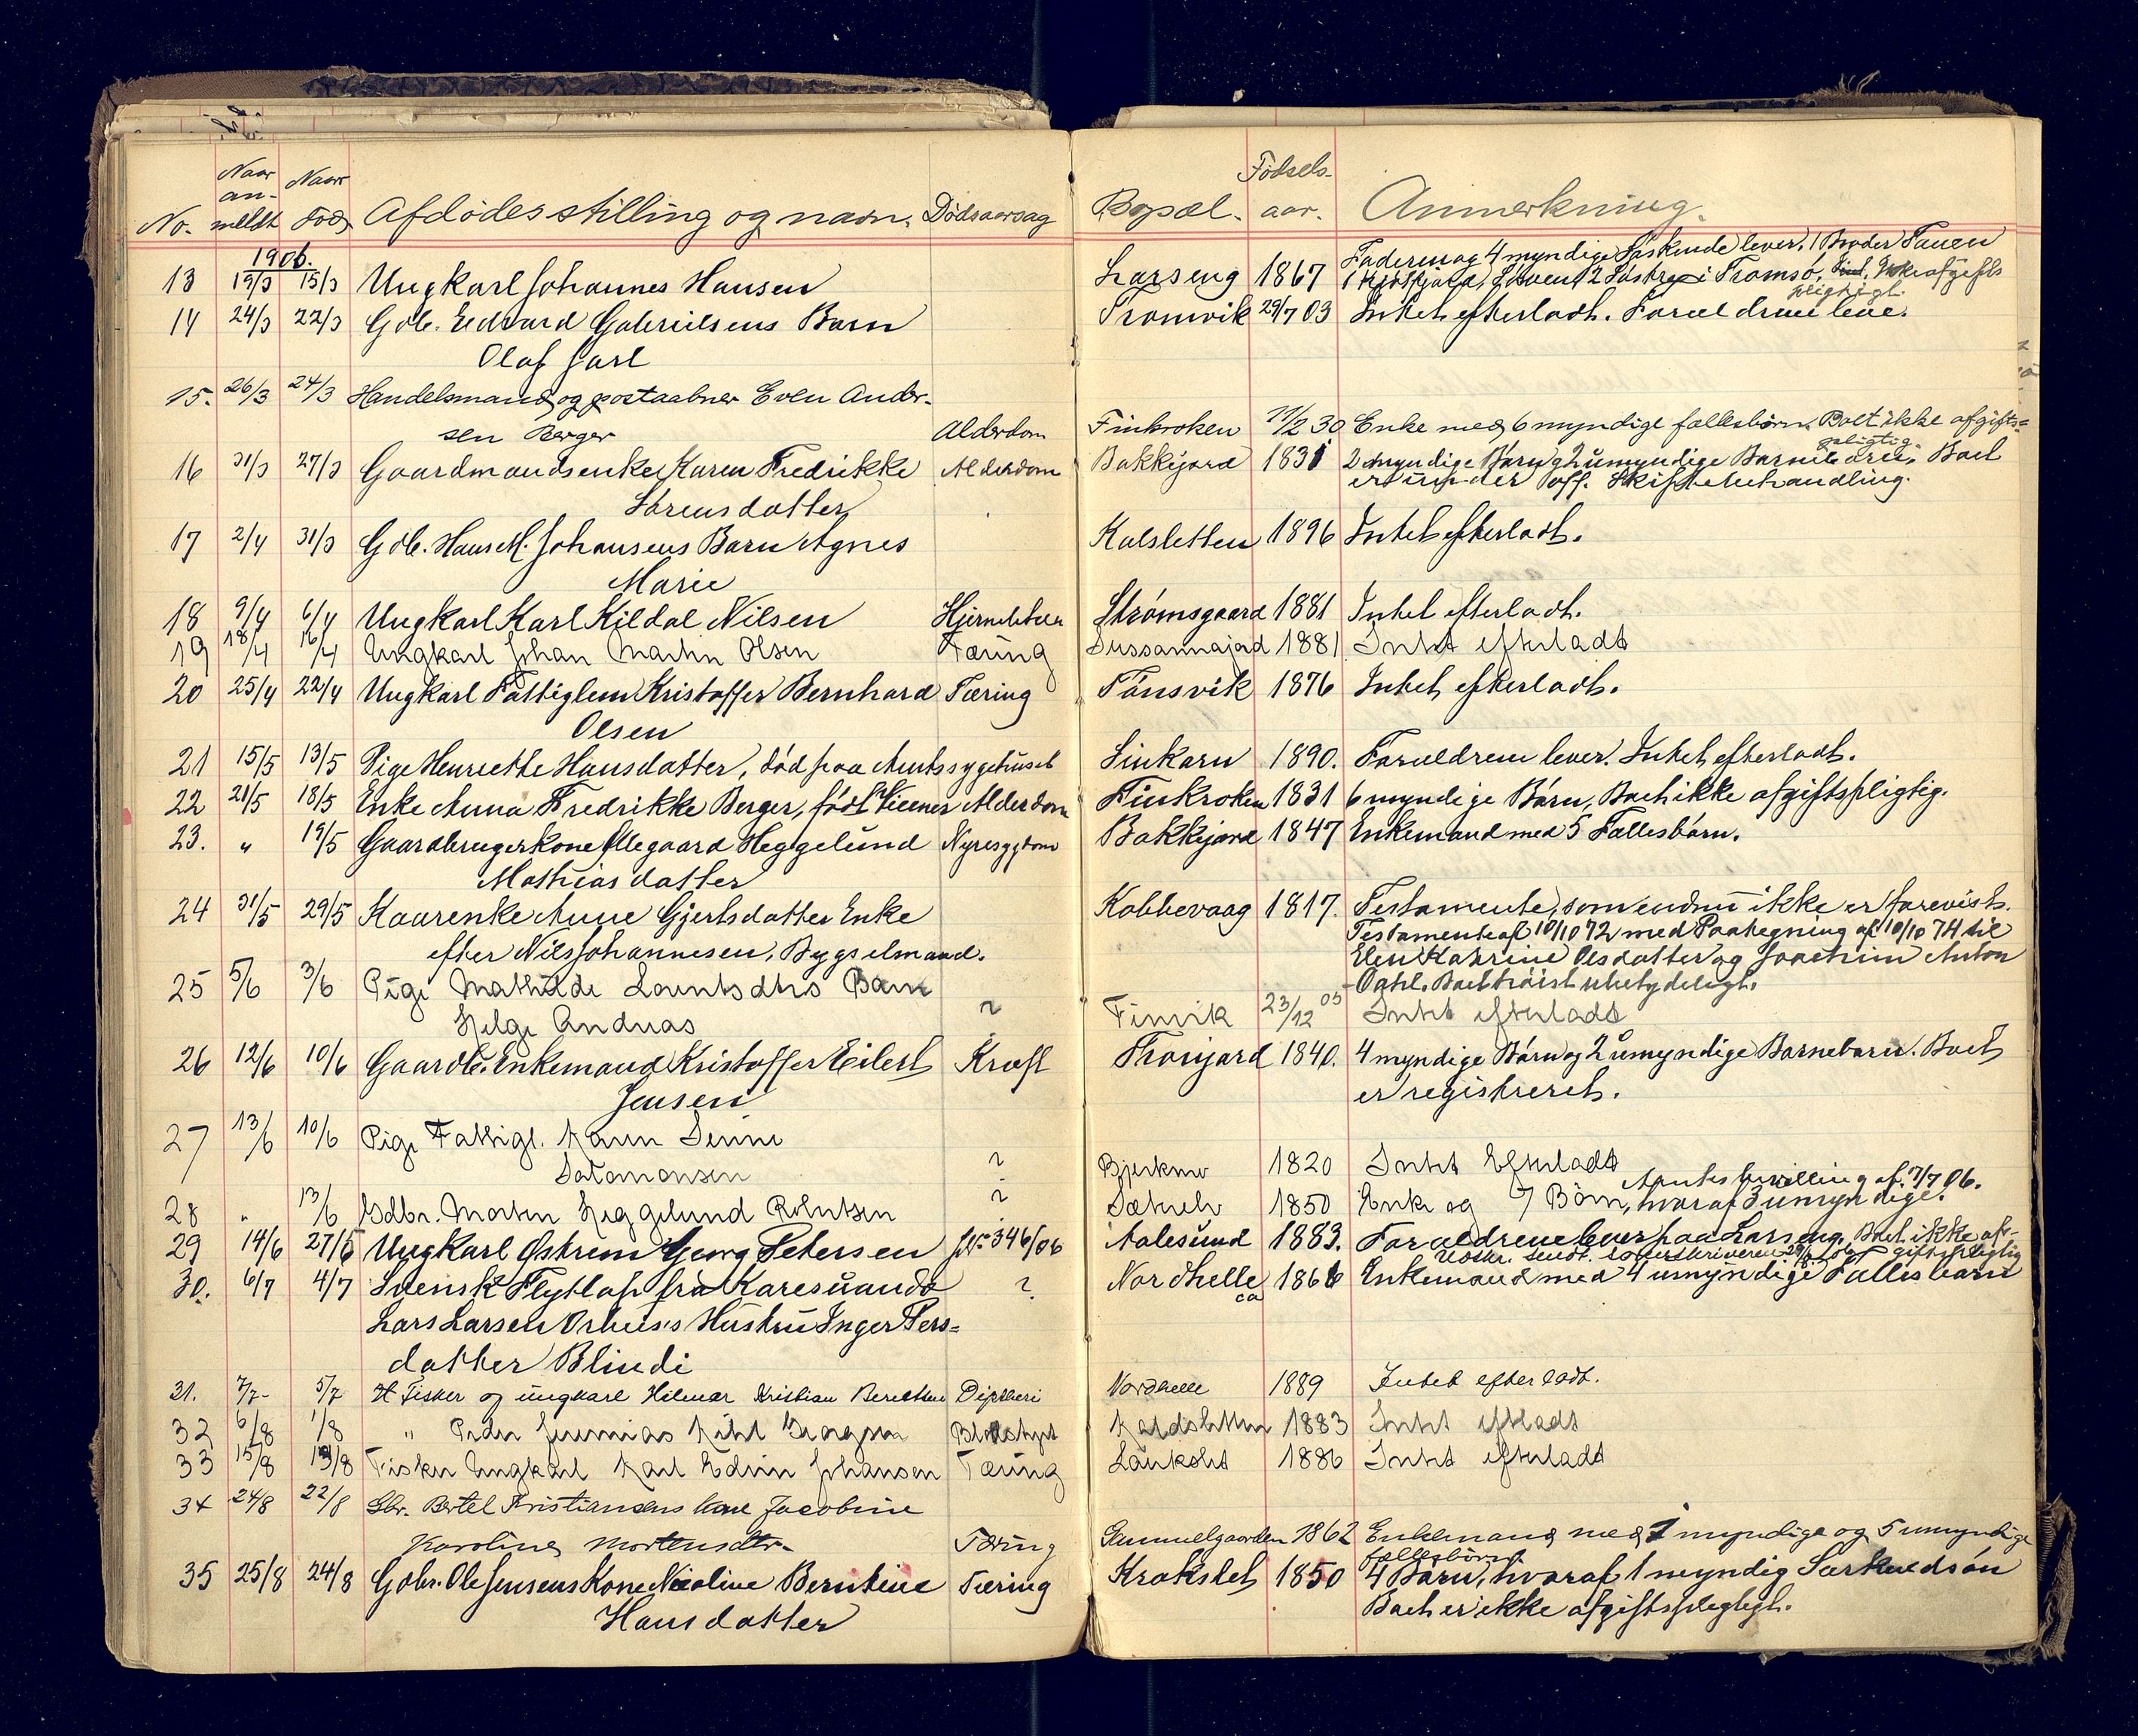 No. Naar anmeldt Naar død Afdödes stilling og navn. Dödsaarsag Bopæl. Födsels-aar. Anmerkning.
1906.
13 19/3 15/3 Ungkarl Johannes Hansen Larseng 1867 Faderen og 4 myndige Söskende lever, 1 Broder
2 Söstre i Tromsö. Ikke afgifts
pligtigt.
14 24/3 22/3 Gdb. Edvard Gabrielsens Barn Tromvik 29/7 03 Intet efterladt. Forældrene leve.
Olaf Jarl
15. 26/3 24/3 Handelsmand og postaabner Even Ander-
sen Berger Alderdom Finkroken 11/2 30 Enke med 6 myndige fællesbörn. Boet ikke afgifts=
pligtig.
16 31/3 27/3 Gaardmandsenke Karen Fredrikke Alderdom Bakkejord 1831 2 myndige Börn og 2 umyndige Barnebörn, Boet
Sörensdatter er under off. Skiftebehandling.
17 2/4 31/3 Gdb. Hans M. Johansens Barn Agnes Kalsletten 1896 Intet efterladt.
Marie
18 9/4 6/4 Ungkarl Karl Kildal Nilsen Strömsgaard 1881 Intet efterladt.
19 18/4 16/4 Ungkarl Johan Martin Olsen Tæring Sussannajord 1881 Intet efterladt
20 25/4 22/4 Ungkarl Fattiglem Kristoffer Bernhard Tæring Tönsvik 1876 Intet efterladt.
Olsen
21 15/5 13/5 Pige Henriette Hansdatter, död paa Amtssygehuset Sinkarn 1890. Forældrene lever. Intet efterladt.
22 21/5 18/5 Enke Anna Fredrikke Berger, födt Alderdom Finkroken 1831 6 myndige Börn, Boet ikke afgiftspligtig.
23. " 19/5 Gaardbrugerkone Ollegaard Heggelund Nyresygdom Bakkejord 1847 Enkemand med 5 Fællesbörn.
Mathiasdatter
24 31/5 29/5 Kaarenke Anne Gjertsdatter Enke Kobbevaag 1817. Testamente, som endnu ikke er forevist.
efter Nils Johannesen, Bygselmand. Testamente af 10/10 72 med Paategning af 10/10 74 til
Elen Katrine Olsdatter og Joachim Anton
Boet höist ubetydeligt.
25 5/6 3/6 Pige Mathilde Lorentsdtrs Barn
Helge Andreas ? Finvik 23/12 05 Intet efterladt
26 12/6 10/6 Gaardb. Enkemand Kristoffer Eilert Kræft Tronjord 1840. 4 myndige Börn og 2 umyndige Barnebarn. Boet
Jensen er registreret.
27 13/6 10/6 Pige Fattigl. Karen Sirine
Salamonsen ? Bjerkmo 1820 Intet Efterladt
Amtsbevilling af 7/7 06.
28 " 13/6 Gdbr. Morten Heggelund Robertsen ? Sætrelv 1850 Enke og 7 Börn, hvoraf 3 umyndige.
29 14/6 27/5 Ungkarl Östrem Georg Petersen Jr. 346/06 Aalesund 1883. Forældrene lever paa Larseng. Boet ikke af-
giftspligtig
30. 6/7 4/7 Svensk Flytlap fra Karesuando ? Nordhella ca 1866 Enkemand med 4 umyndige Fællesbarn
Lars Larsen Hustru Inger Pers=
datter Blindi
31. 7/7 5/7 Fisker og ungkarl Hilmar Kristian Berntsen Diptheri Nordhella 1889 Intet efterladt.
32 6/8 1/8 " Peder Jeremias Kihl Georgsen Blodstyrt Kaldsletten 1883 Intet efterladt
33 15/8 13/8 Fisker Ungkarl Karl Edvin Johansen Tæring Lauksletta 1886 Intet efterladt
34 24/8 22/8 Gbr. Bertel Kristiansens kone Jacobine
Karoline Mortensdtr. Tæring Sammuelgaarden 1862 Enkemand med 1 myndige og 5 umyndige
fællesbörn.
35 25/8 24/8 Gdbr. Ole Jensens Kone Nicoline Berntine Tæring Krokslet 1850 4 Barn, hvoraf 1 myndig Særkuldsön
Hansdatter Boet er ikke afgiftspligtigt.